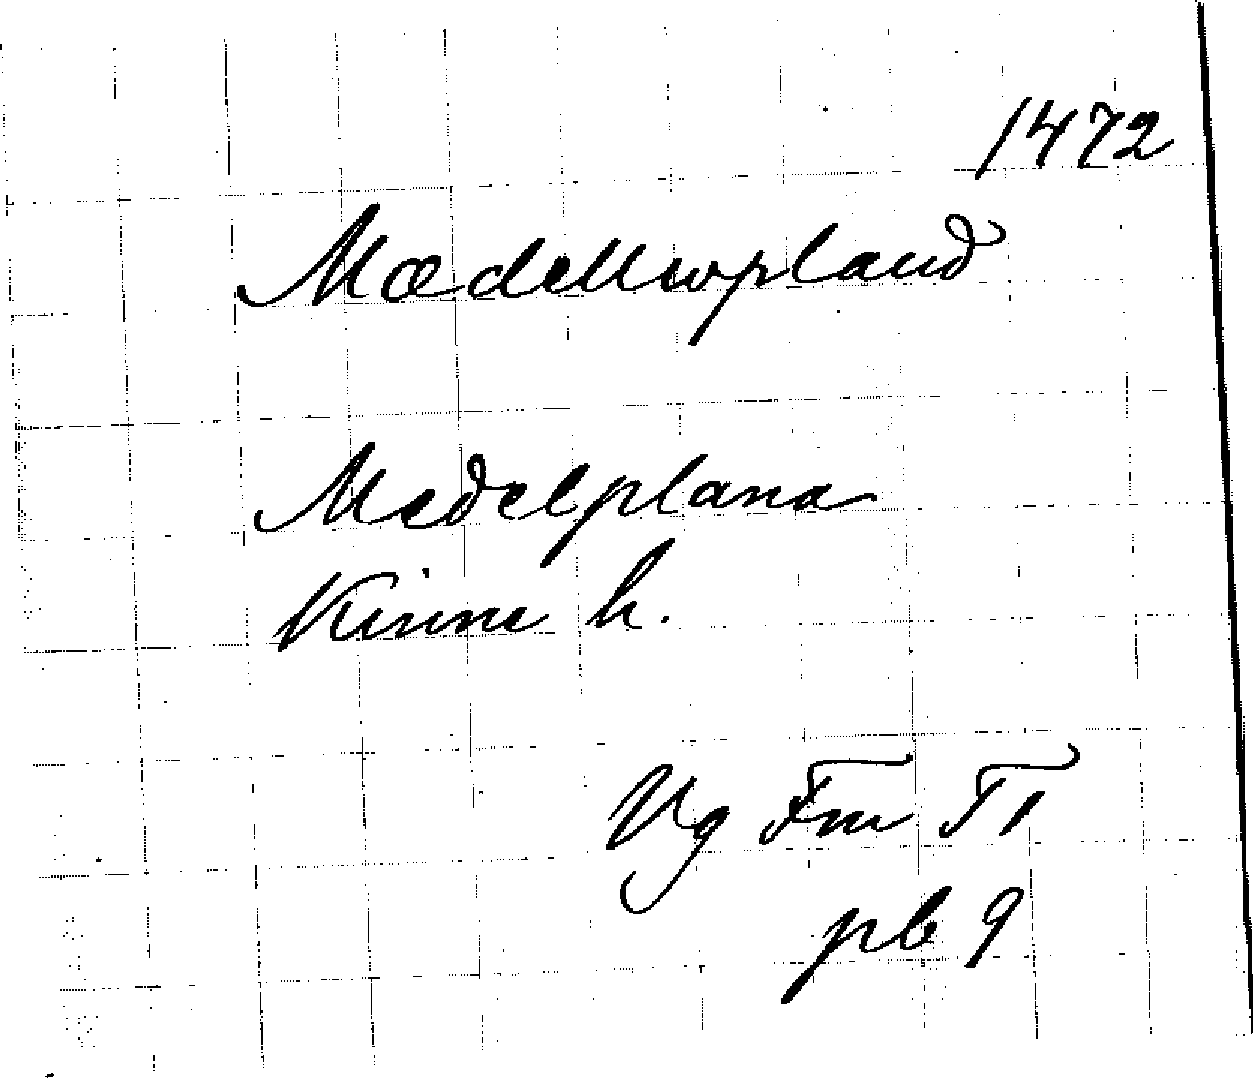 1472
Mædellwpland
Medelplana
Kinne h.
Vg Fm TI
pb 9